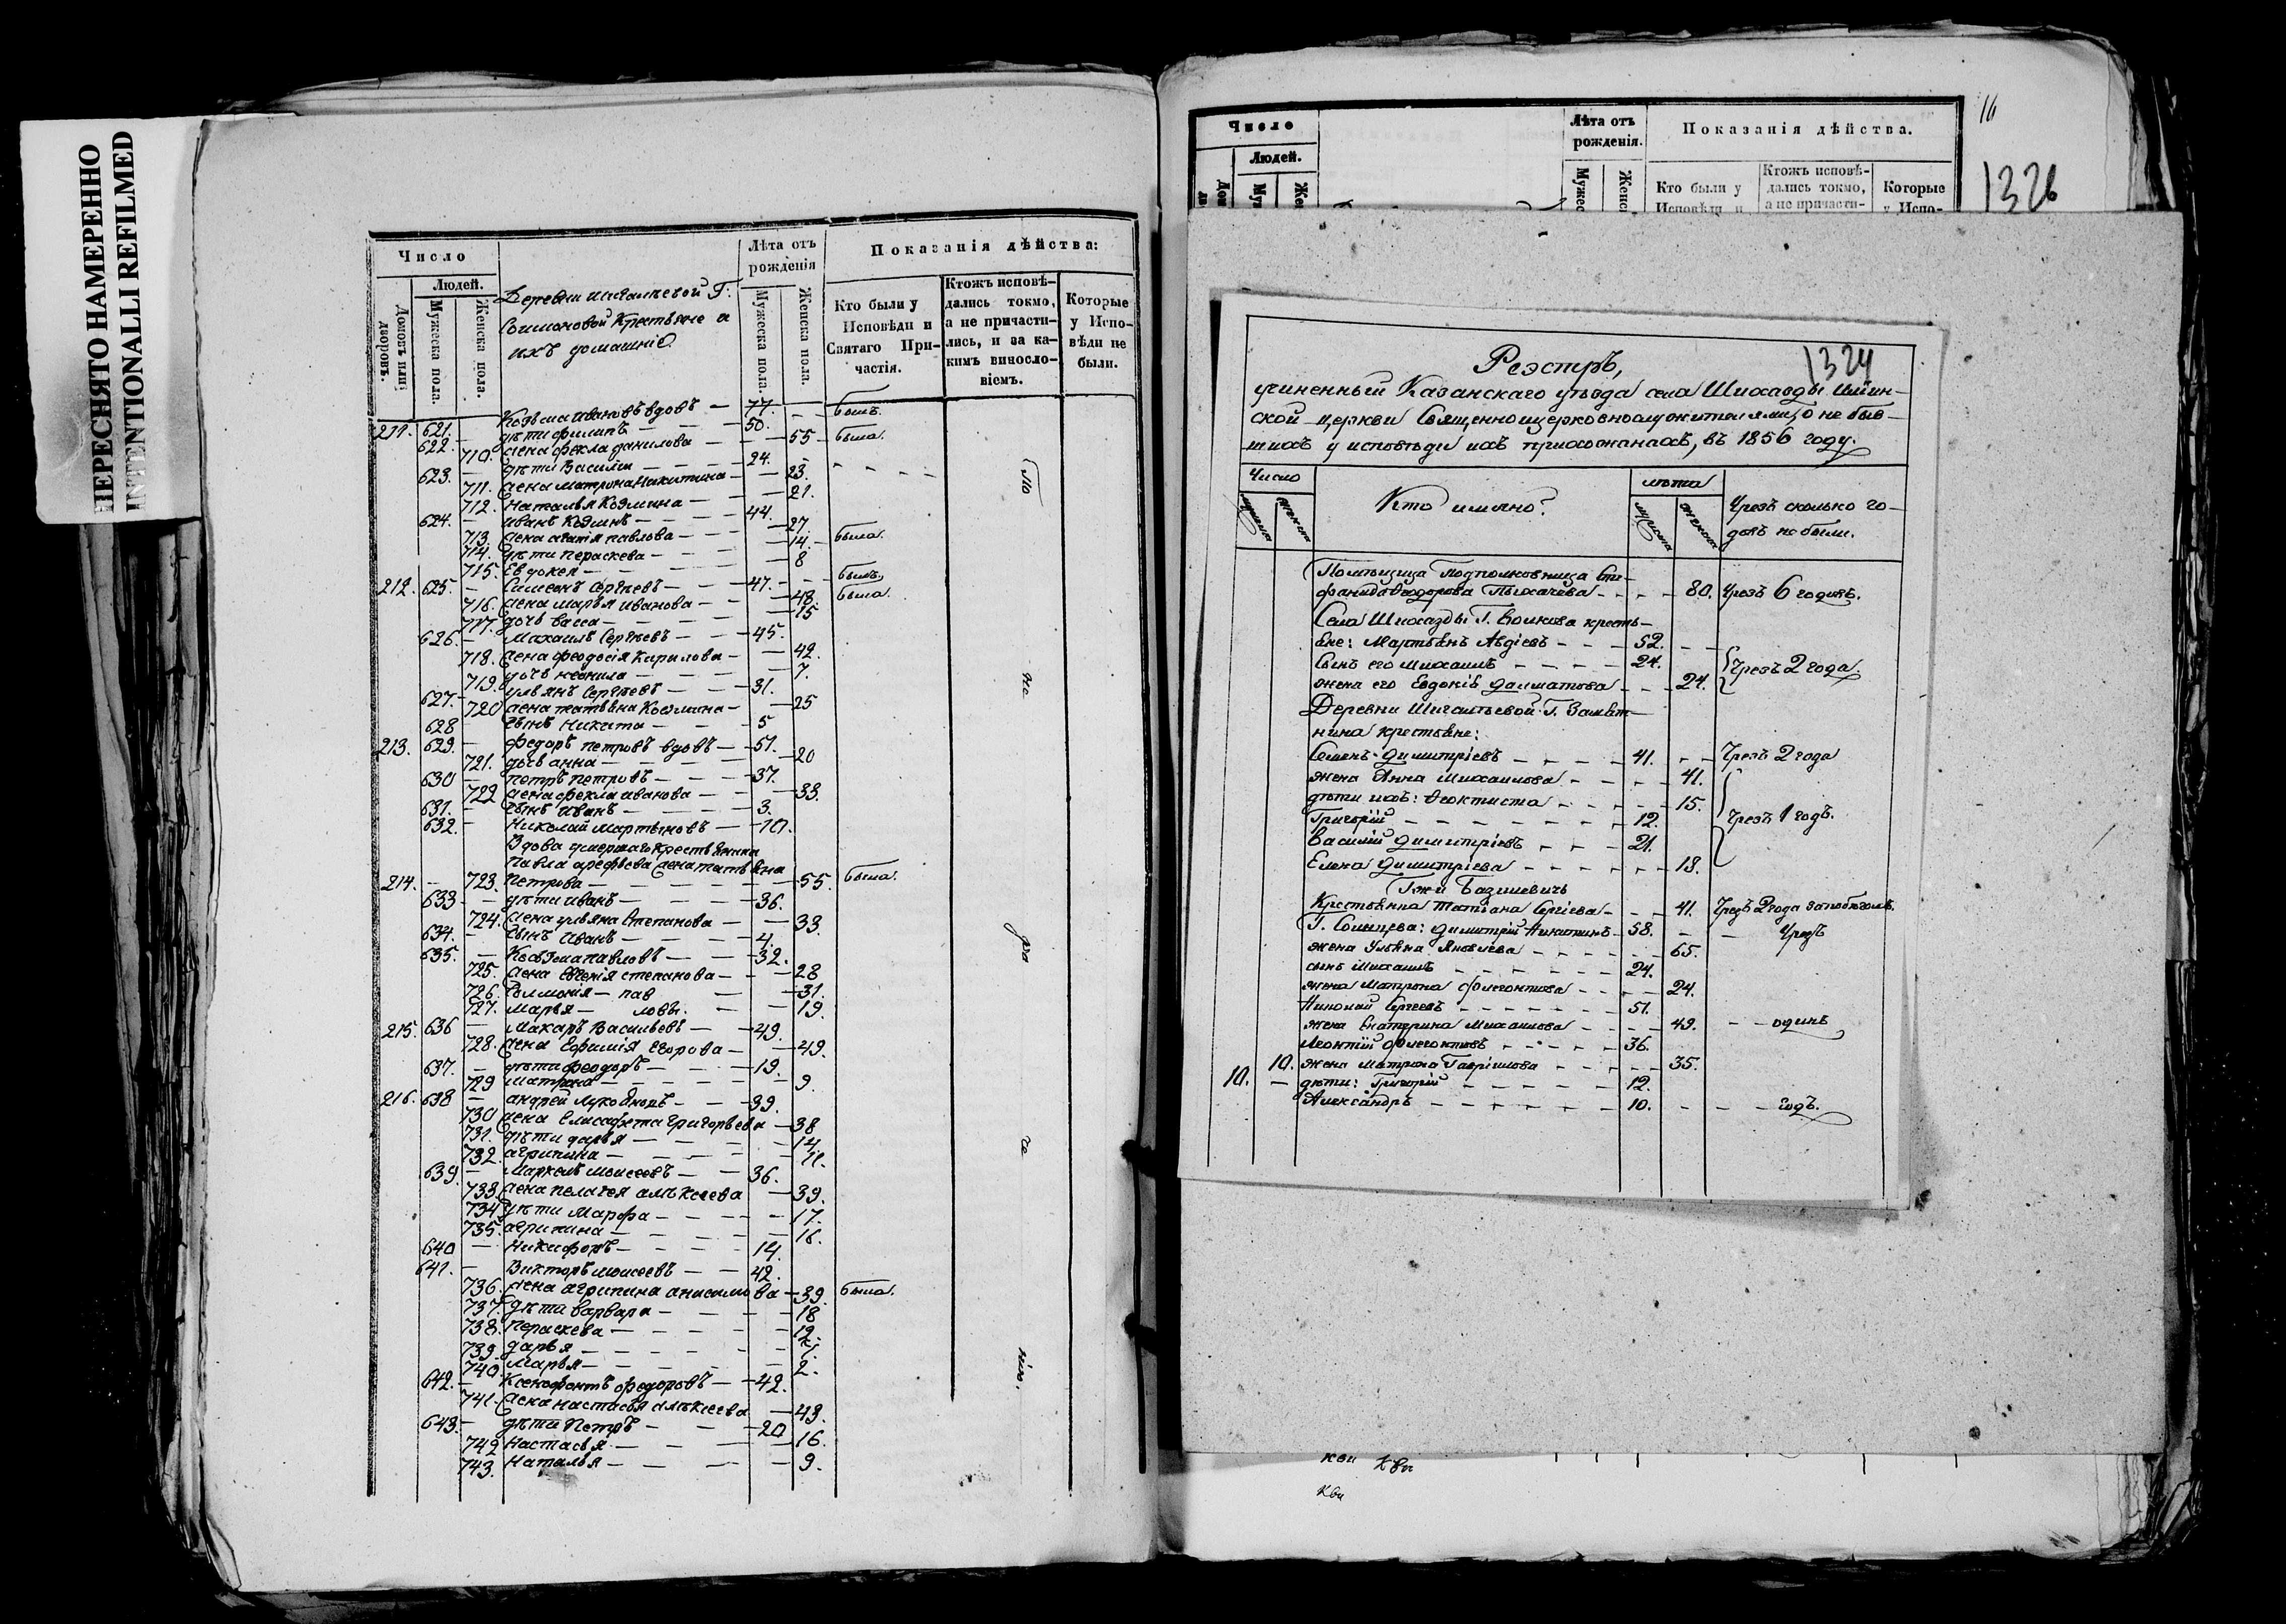 ПЕРЕСНЯТО НАМЕРЕННО
INTENTIONALLI REFILMED
Число
Лѣта отъ рожденія
Показанія дѣйства:
Людей.
Домовъ или дворовъ.
Мужеска пола.
Женска пола.
Мужеска пола.
Женска пола.
Кто были у Исповѣди и Святаго Причастія.
Ктожъ исповѣдались токмо, а не причастились, и за какимъ винословіемъ.
Которые у Исповѣди не были.
Деревни Шигалѣевой Г.
Крестьяне и
ихъ домашніе
211. 621. Козьма Ивановъ вдовъ 77. былъ.
622. дѣти Филипъ 50.
710. жена Фекла Данилова 55 была.
623. дѣти Василій 24.
711. жена Матрона Никитина 23.
712. Наталья Козмина 21.
624. Иванъ Козминъ 44.
713. жена Агафія Павлова 27
714. дѣти Пераскева 14. была.
715. Евдокея 8
212. 625. Симеонъ Сергѣевъ 47. былъ.
716. жена Марья Иванова 48. была.
717. дочь Васса 15
626. Михаилъ Сергѣевъ 45.
718. жена Феодосія Кирилова 42.
719. дочь Неонила 7.
627. Ульянъ Сергѣевъ 31.
720 жена Татьяна Козмина 25
628 сынъ Никита 5
213. 629. Федоръ Петровъ вдовъ 51.
721. дочь Анна 20
630 Петръ Петровъ 37.
722 жена Фекла Иванова 33.
631. сынъ Иванъ 3.
632. Николай Мартыновъ 10.
Вдова умершаго крестьянина
Павла Арефьева жена Татьяна
214. 723. Петрова 55. была.
633 дѣти Иванъ 36.
724. жена Ульяна Степанова 33.
634. сынъ Иванъ 4.
635. Козьма Павловъ 32.
725. жена Евгенія Степанова 28
726. Соломонія пав 31.
727. Марья ловы. 19.
215. 636 Макаръ Васильевъ 49.
728. жена Ефимія Егорова 49.
637. дѣти Феодоръ 19.
729 Матрона 9.
216. 638 Андрей Лукояновъ 39.
730 жена Елисафета Григорьева 38
731. дѣти Дарья 14.
732. Агрипина 11.
639. Маркелъ Моисеевъ 36.
733. жена Пелагея Алѣксеева 39.
734 дѣти Марфа 17.
735. Агрипина 16.
640 Никифоръ 14.
641. Викторъ Моисеевъ 42.
736. жена Агрипина Анисимова 39. была.
737. дѣти Варвара 18
738. Пераскева 12.
739. Дарья 7.
740. Марья 2.
642. Ксенофонтъ Федоровъ 42.
741. жена Настасья Алѣксеева 43.
643. дѣти Петръ 20
742 Настасья 16.
743. Наталья 9.
По
не
ра
че
нію.
Число
Людей.
Лѣта отъ рожденія.
Показанія дѣйства.
16
1326
Кто были у
Ктожъ исповѣдались токмо, а не причасти-
Которые
Реэстръ,
1324
учиненный Казанскаго уѣзда села Шихазды
ской церкви Священноцерковнослужителями, о не быв-
шихъ у исповѣди ихъ прихожанахъ, въ 1856 году.
Число
лѣта
Кто имяно?
Чрезъ сколько го-
довъ не были.
Помѣщица Подполковница Сте-
фанида Феодорова Пыхачева 80. Чрезъ 6 годовъ.
Села Шихазды Г. Волкова кресть-
яне: Мартьянъ Авдіевъ 52.
Сынъ его Михаилъ 24.
жена его Евдокія Далматова 24. Чрезъ 2 года.
Деревни Шигалѣевой Г. Замят-
нина крестьяне:
Семенъ Димитріевъ 41. Чрезъ 2 года
жена Анна Михаилова 41.
дѣти ихъ: Феоктиста 15.
Григорій 12. Чрезъ 1 годъ.
Василій Димитріевъ 21.
Елена Димитріева 18.
Г-жи Базилевичь
Крестьянка Татіана Сергіева 41. Чрезъ 2 года за побѣгомъ.
Г. Солнцева: Димитрій Никитинъ 58. Чрезъ
жена Ульяна Яковлева 65.
сынъ Михаилъ 24.
жена Матрона Флегонтова 24.
Николай Сергеевъ 51.
жена Екатерина Михаилова 49. одинъ
Леонтій Флегонтовъ 36.
10. жена Матрона Гавріилова 35.
10. дѣти: Григорій 12.
Александръ 10. годъ.